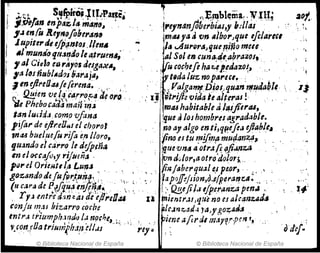 Suspiros. II. Parte,
y posan en paz la mano,
ya en su Reyno soberano
Iupiter de espantos llena
al mundo quando le atruena,
y al Cielo en rayos desgaxa,
ya los ñublados baraja,
y en estrellas se serena.
Quien ve la carroça de oro
de Phebo cada mañana
tan lucida como vfana
pisar de estrellas el choro!
mas buelue su risa en lloro,
quando el carro se despeña
en el occaso, y risueña
por el Oriente la Luna
gozando de su fortuna,
su cara de Pasqua enseña.
Y ya entre donzelas de estrellas
con su mas bizarro coche
entra triumphando la noche,
y con ella triumphan ellas
rey-
Emblema. VIII.
207
reynan soberbias, y bellas
mas ya à vn albor, que esclarece
la Aurora, que niño mece
al Sol en cuna, de abrazos,
su coche se haze pedazos,
y toda luz no parece.
Valgame Dios, quan mudable
es triste vida te alteras!
mas habitable à las fieras,
que à los hombres agradable.
no ay algo en ti, que sea estable,
sino es tu misma mudanza,
que vna a otra se afianza
vn dolor, a otro dolor,
sin saber qual es peor,
la possession, ò esperanza.
Que si la esperanza pena
mientras, que no es alcanzada
alcanzada ya, y gozada
viene a ser de mayor pena,
ò des-
11
12
13
14
© Biblioteca Nacional de España
© Biblioteca Nacional de España